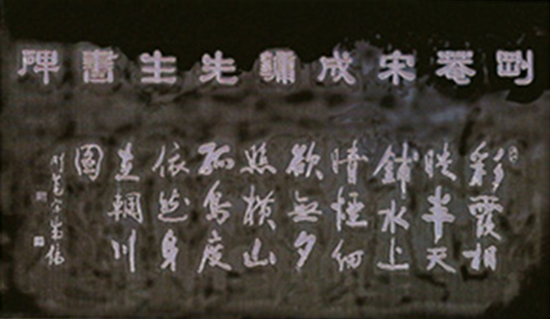 剛菴宋成鏞先生書碑
彩霞相
映半天
鋪水上
晴煙細
欲無夕
照橫山
孤鳥度
依然身
在輞川
圖
剛菴宋成鏞